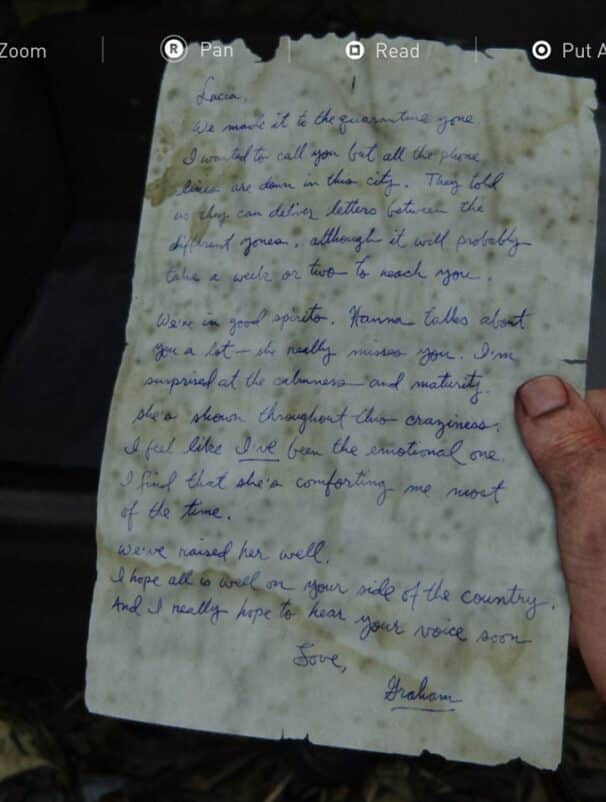 Zoom
R Pan
Read
Put A
Lucia,
We made it to the quarantine zone.
I wanted to call you but all the phone
lines are down in this city. They told
us they can deliver letters between the
different zones, although it will probably
take a week or two to reach you.
We're in good spirits. Hanna talks about
you a lot - she really misses you. I'm
surprised at the calmness and maturity
she's shown throughout this craziness.
I feel like I've been the emotional one.
I find that she's comforting me most
of the time.
We've raised her well.
I hope all is well on your side of the country.
And I really hope to hear your voice soon
Love,
Graham